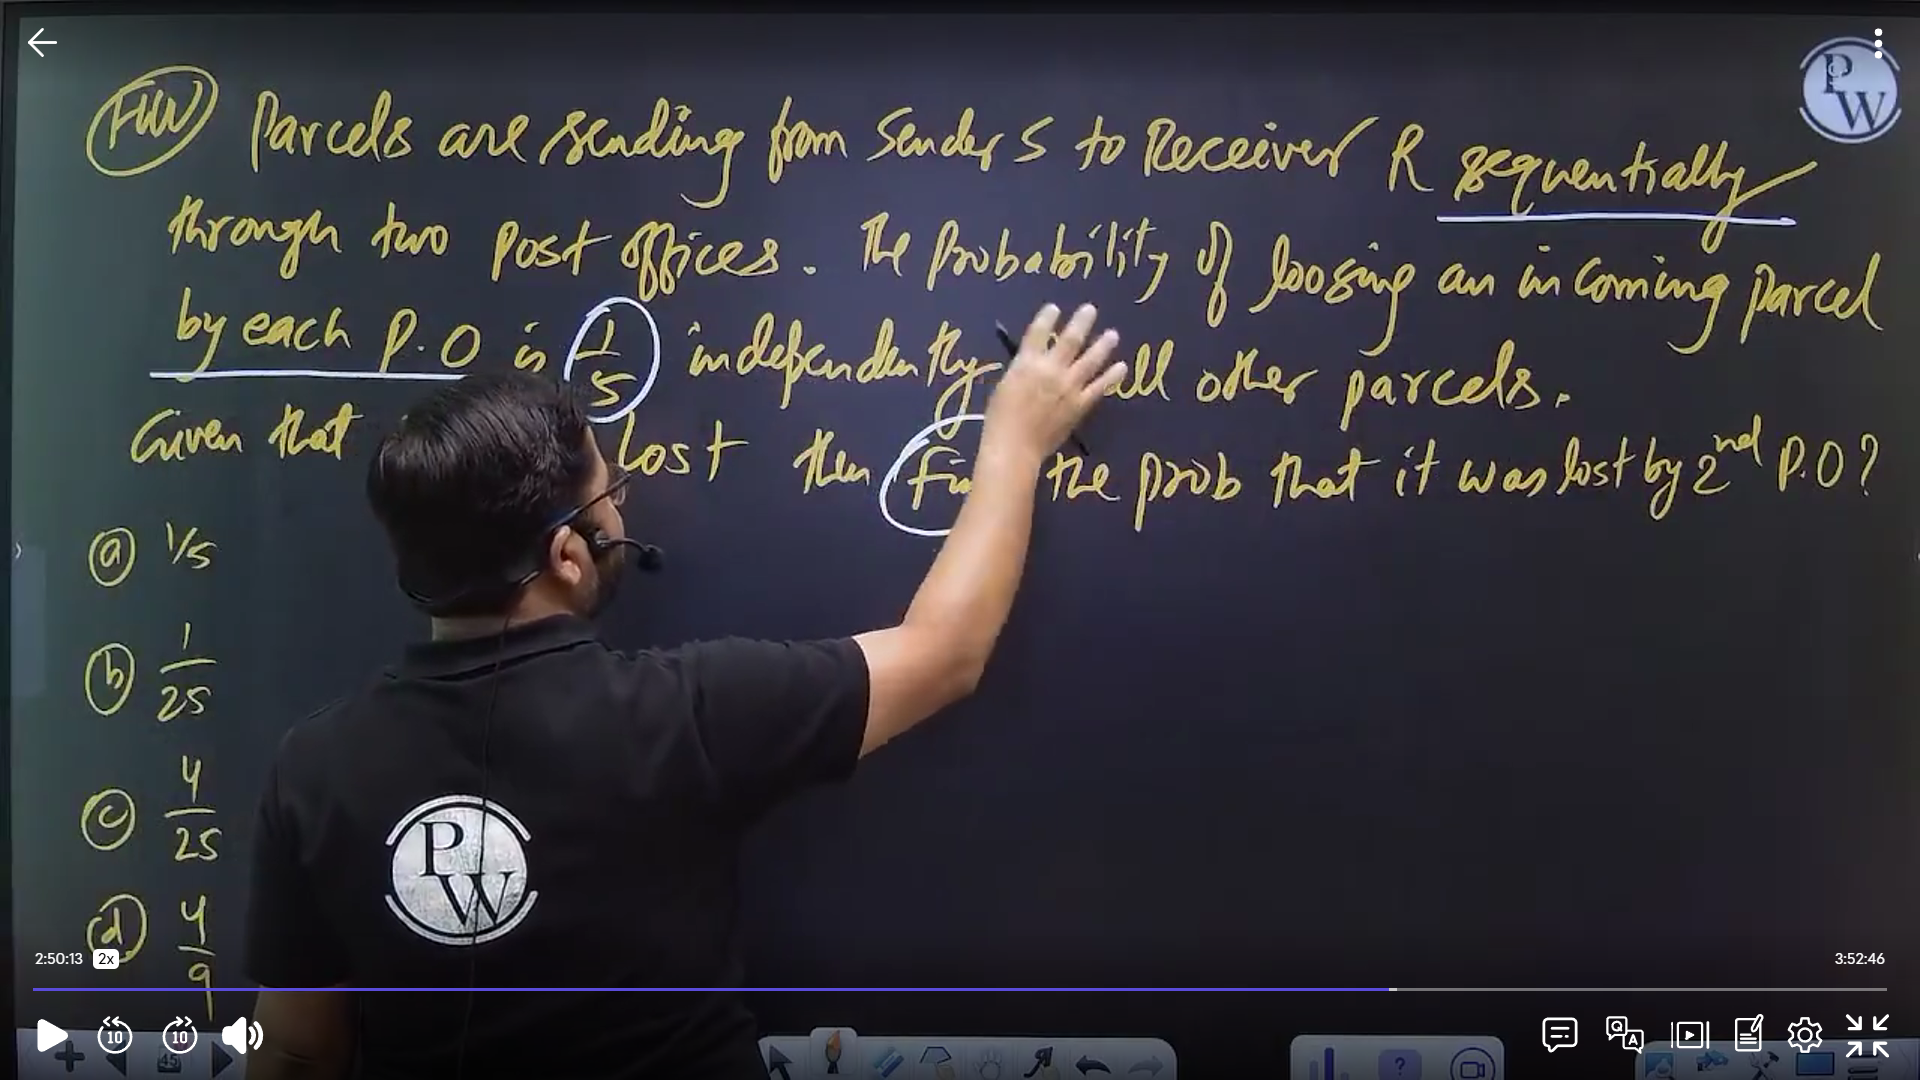 HW Parcels are sending from Sender S to Receiver R sequentially
through two post offices. The probability of loosing an incoming parcel
by each P.O is 1/5 independently all other parcels.
Given that lost then the prob that it was lost by 2nd P.O?
(a) 1/5
(b) 1/25
(c) 4/25
(d) 4/9
PW
PW
2:50:13 2x 3:52:46
10 10
45